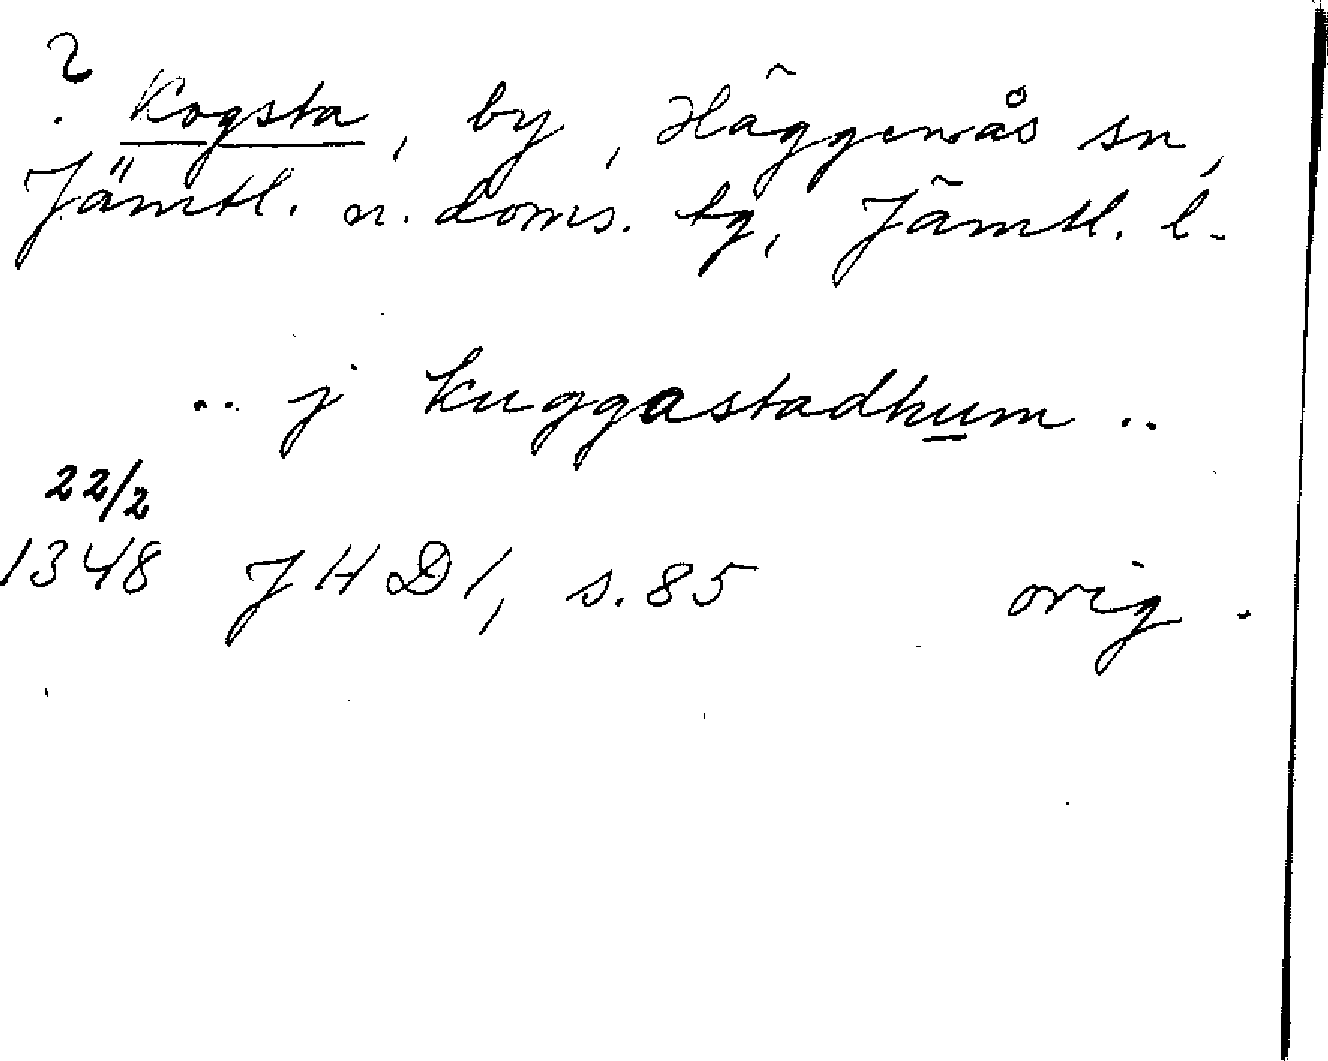 ? Kogsta, by, Häggenås sn,
Jämtl. n. doms. tg, Jämtl. l.
.. j kuggastadhum ..
22/2
1348 JHD 1, s. 85 orig.